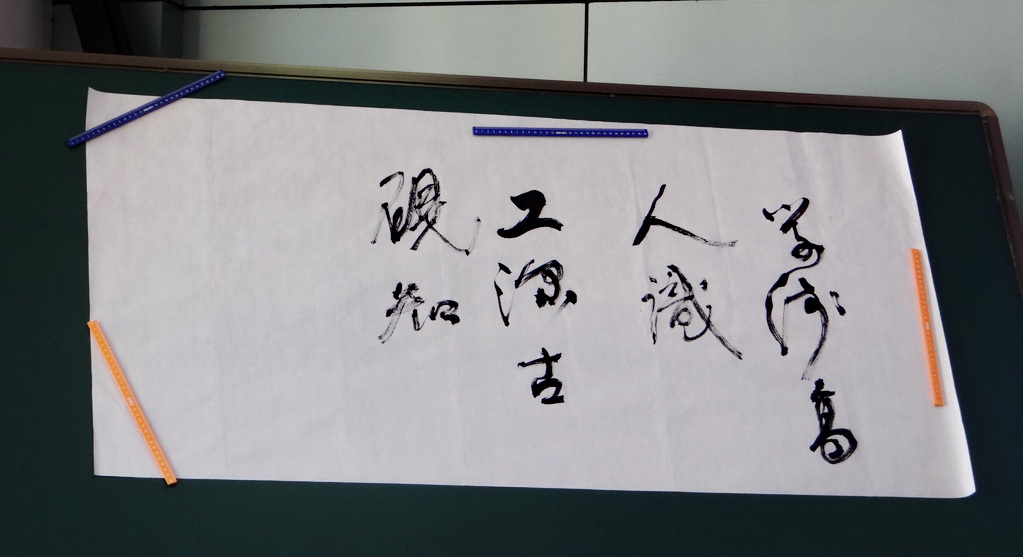 学浅高
人識
工深古
硯知